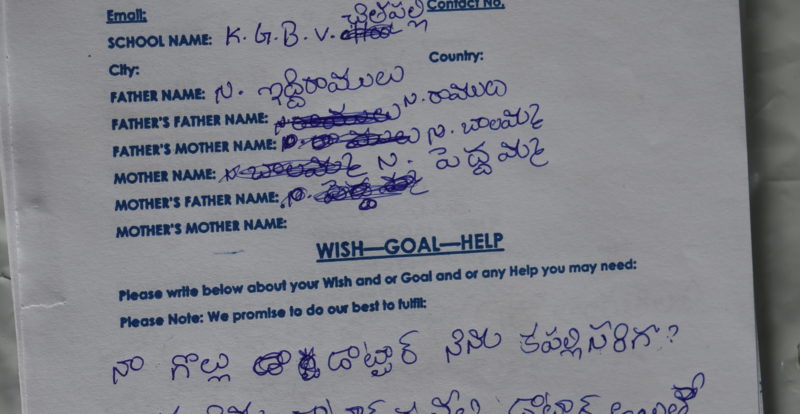 చిల్లపల్లి
Email: Contact No.
SCHOOL NAME: K. G. B. V.
City: Country:
FATHER NAME: స. ఇద్దిరాములు
FATHER'S FATHER NAME: స. రాములు
FATHER'S MOTHER NAME: స. బాలమ్మ
MOTHER NAME: స. పెద్దమ్మ
MOTHER'S FATHER NAME:
MOTHER'S MOTHER NAME:
WISH—GOAL—HELP
Please write below about your Wish and or Goal and or any Help you may need:
Please Note: We promise to do our best to fulfil:
నా గొల్లు డాట్టార్ నేను